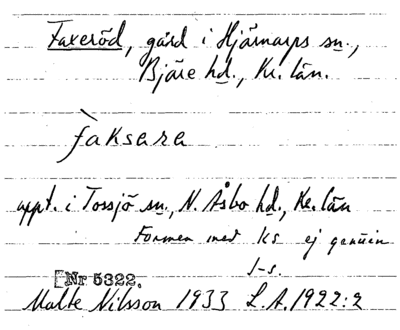 Faxeröd, gård i Hjärnarps sn.,
Bjäre hd., Kr. län.
fàksara
uppt. i Tossjö sn., N. Åsbo hd., Kr. län
Formen med ks ej genuin
J-s.
[Nr 5322.
Malte Nilsson 1933 L.A. 1922:2